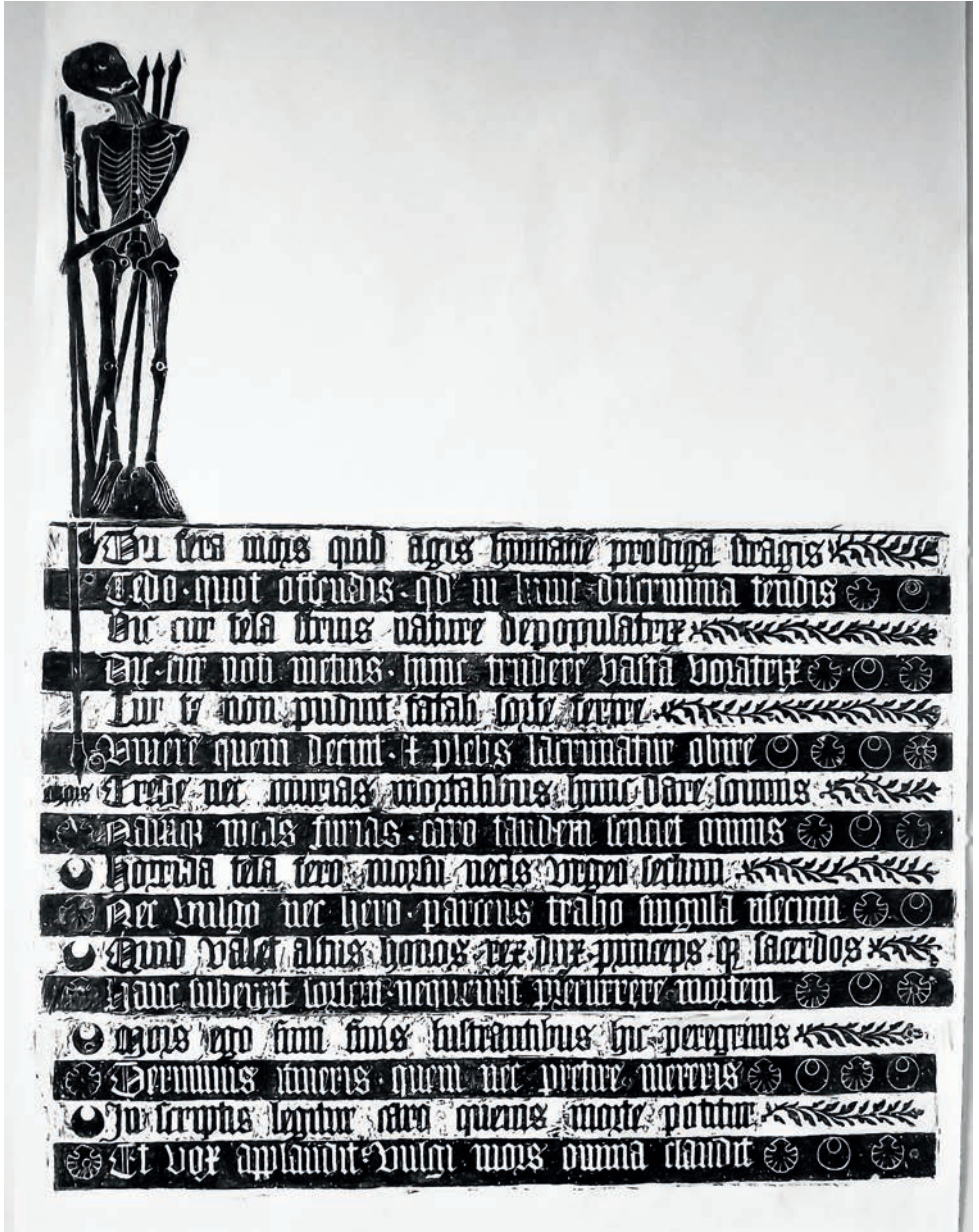 Tu fera mors quid agis humane prodiga stragis
Cedo · quot offendis · qd in hunc discrimina tendis
Dic cur tela struis nature depopulatrix
Dic · cur non metuis · hunc trudere vasta voratrix
Cur te non puduit fatali sorte ferire
Vivere quem decuit · & plebs lacrimatur obire
mors Crede nec iniurias mortalibus hunc dare
Namqz meas furias · caro tandem senciet omnis
Horrida tela fero morsu necis urgeo
Nec vulgo nec hero · parcens traho singula mecum
Quid valet altus honos · rex · dux · princeps · qz sacerdos
Hanc subeunt sortem · nequeunt precurrere mortem
Mors ego sum finis lustrantibus hic peregrinis
Terminus itineris · quem nec pretire mereris
In scriptis legitur caro quevis morte potitur
Et vox applaudit · vulgi mors omnia claudit